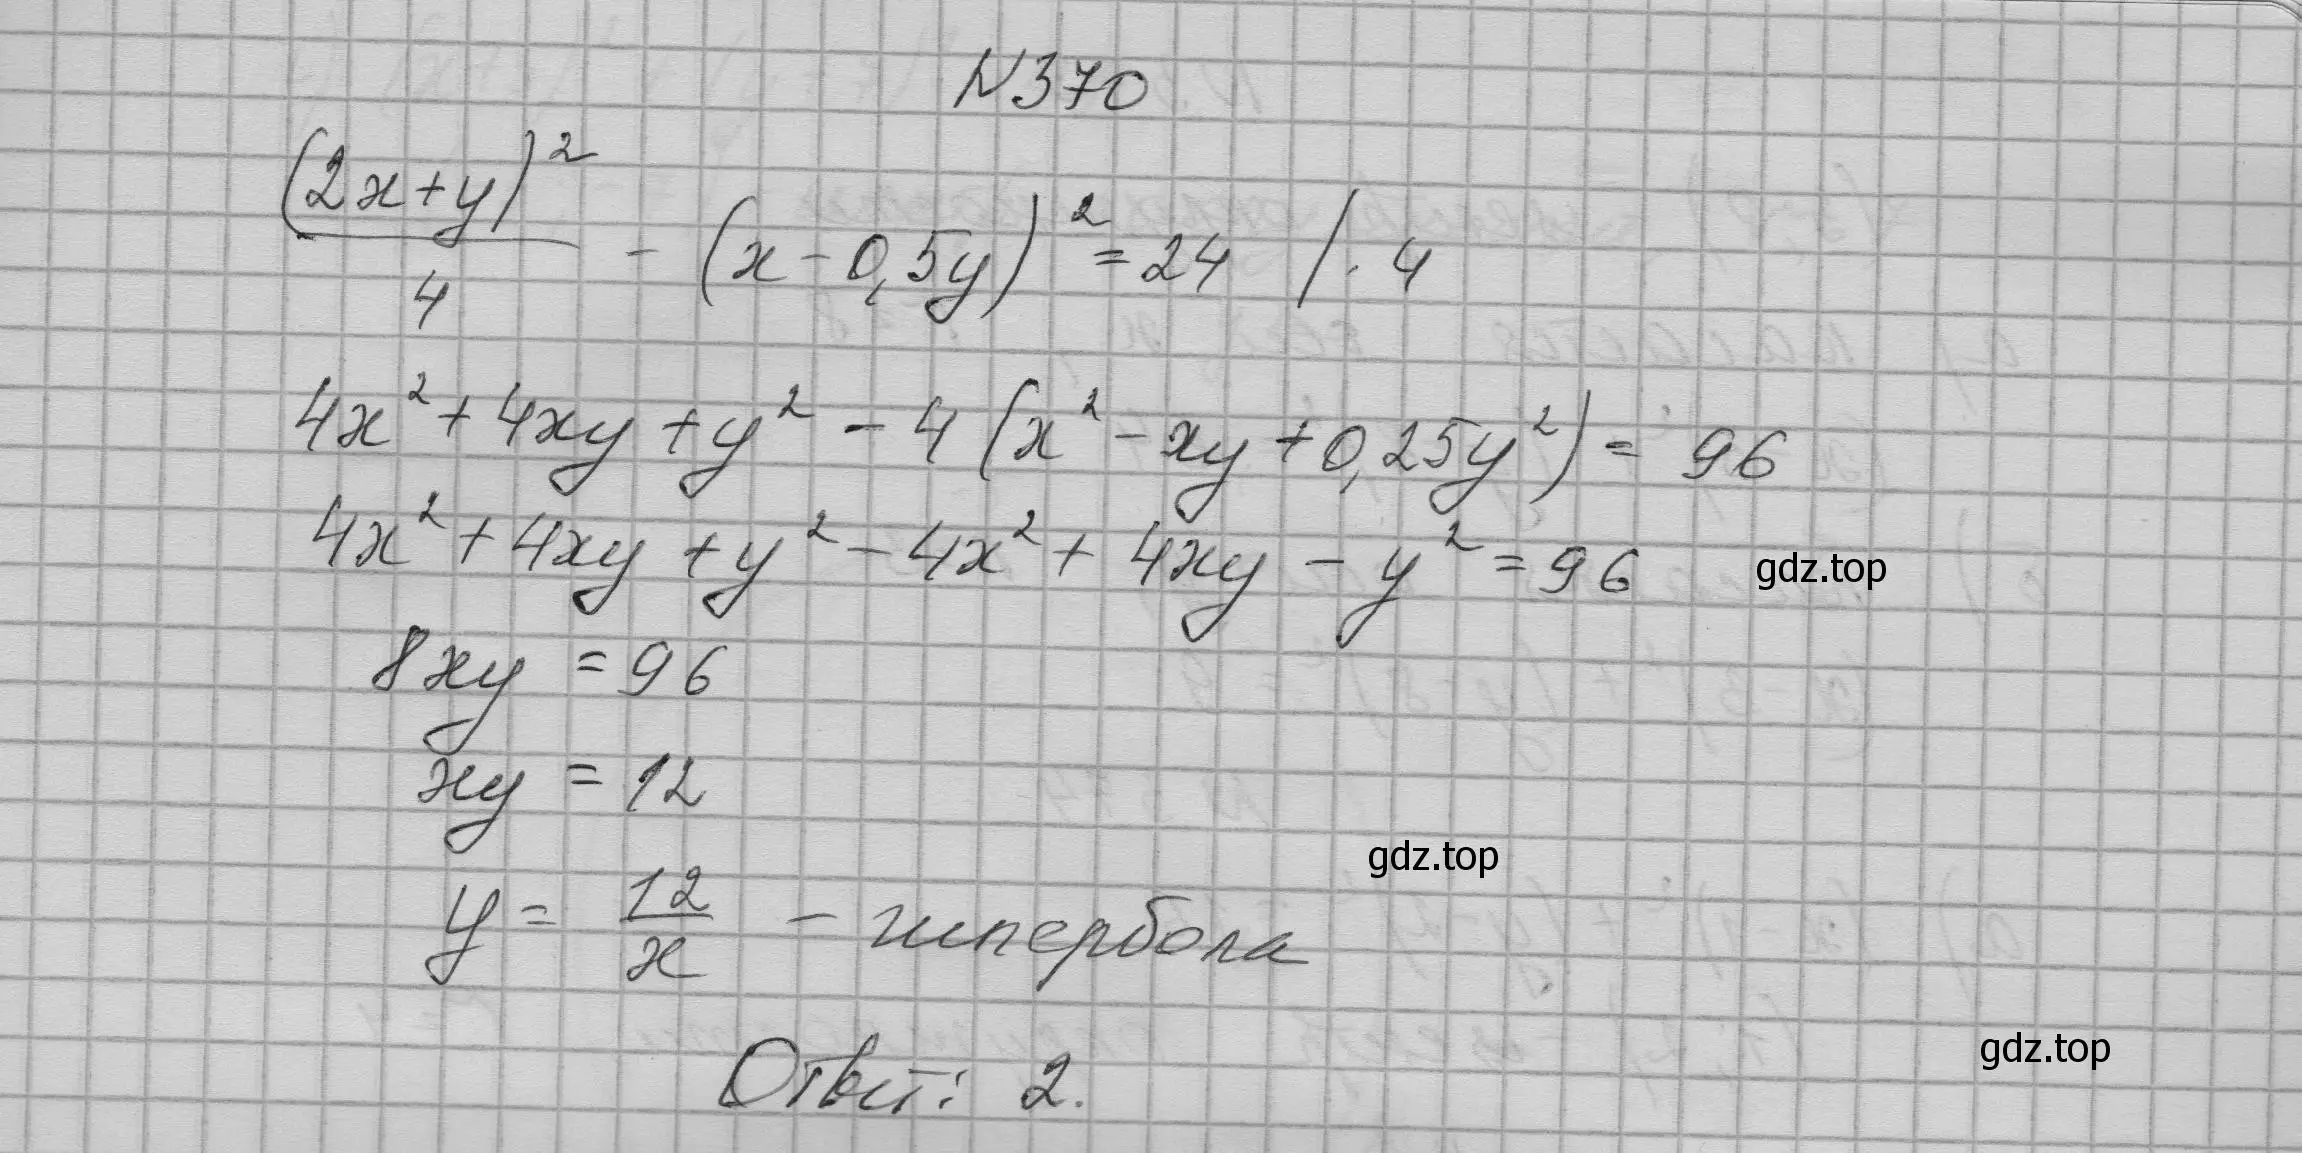 N370
(2x+y)²/4 - (x-0,5y)² = 24 / · 4
4x² + 4xy + y² - 4(x² - xy + 0,25y²) = 96
4x² + 4xy + y² - 4x² + 4xy - y² = 96
gdz.top
8xy = 96
xy = 12
gdz.top
y = 12/x - гипербола
gdz.top
Ответ: 2.